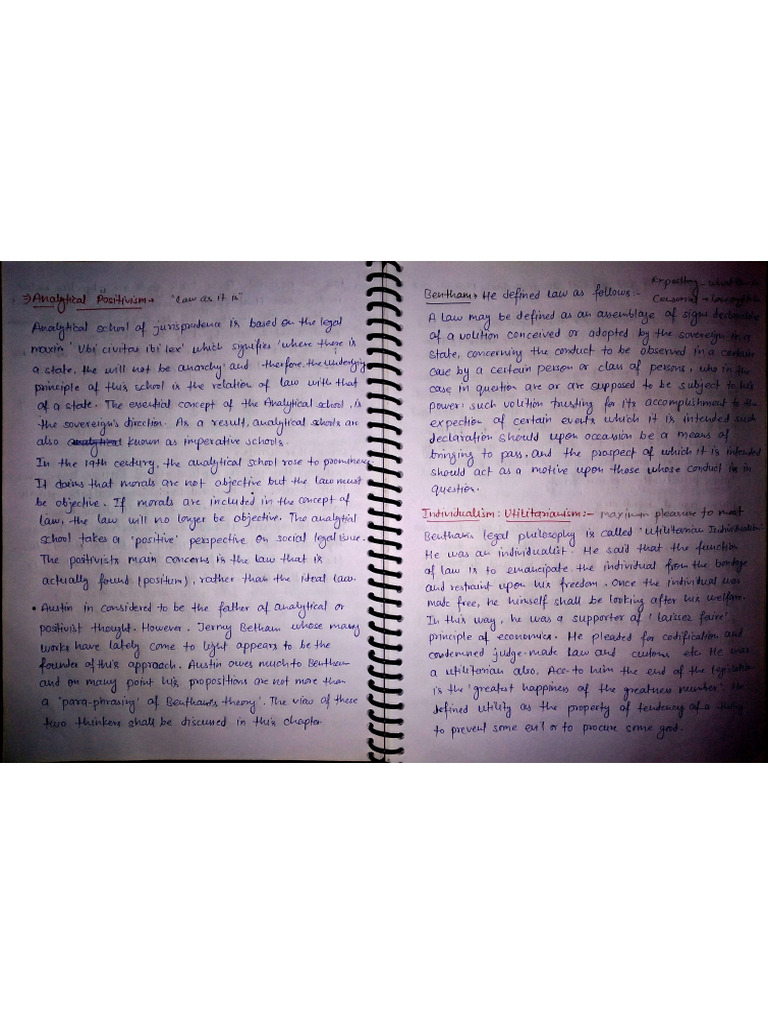 ⇒ Analytical Positivism → "Law as it is"
Analytical school of jurisprudence is based on the legal
maxim 'Ubi civitas ibi lex' which signifies 'where there is
a state, the will not be anarchy' and therefore, the underlying
principle of this school is the relation of law with that
of a state. The essential concept of the Analytical school, is
the sovereign's direction. As a result, analytical schools are
also analytical known as imperative schools.
In the 19th century, the analytical school rose to prominence.
It claims that morals are not objective but the law must
be objective. If morals are included in the concept of
law, the law will no longer be objective. The analytical
school takes a 'positive' perspective on social legal issue.
The positivists main concerns is the law that is
actually found (positum), rather than the ideal law.
• Austin in considered to be the father of analytical or
positivist thought. However, Jermy Betham whose many
works have lately come to light appears to be the
founder of this approach. Austin owes much to Bentham
and on many point his propositions are not more than
a 'para-phrasing' of Bentham's theory'. The view of these
two thinkers shall be discussed in this chapter
Expository - what
Censorial →
Bentham → He defined law as follows:-
A law may be defined as an assemblage of signs declarative
of a volition conceived or adopted by the sovereign in a
state, concerning the conduct to be observed in a certain
case by a certain person or class of persons, who in the
case in question are or are supposed to be subject to his
power: such volition trusting for its accomplishment to the
expection of certain events which it is intended such
declaration should upon occasion be a means of
bringing to pass, and the prospect of which it is intended
should act as a motive upon those whose conduct is in
question.
Individualism: Utilitarianism:- maximum pleasure to most
Bentham's legal philosophy is called 'Utilitarian Individualism'
He was an individualist. He said that the function
of law is to emancipate the individual from the bondage
and restraint upon his freedom. Once the individual was
made free, he himself shall be looking after his welfare.
In this way, he was a supporter of 'laissez faire'
principle of economics. He pleaded for codification and
condemned judge-made law and customs etc. He was
a utilitarian also. Acc. to him the end of the legislation
is the 'greatest happiness of the greatness number'. He
defined utility as the property of tendency of a thing
to prevent some evil or to procure some good.